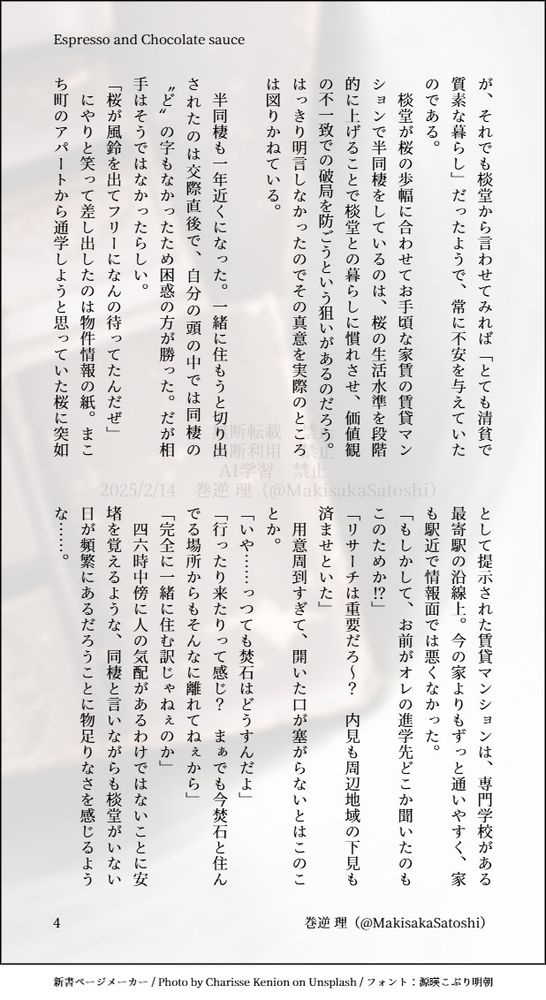 Espresso and Chocolate sauce
が、それでも棪堂から言わせてみれば「とても清貧で
質素な暮らし」だったようで、常に不安を与えていた
のである。
　棪堂が桜の歩幅に合わせてお手頃な家賃の賃貸マン
ションで半同棲をしているのは、桜の生活水準を段階
的に上げることで棪堂との暮らしに慣れさせ、価値観
の不一致での破局を防ごうという狙いがあるのだろう。
はっきり明言しなかったのでその真意を実際のところ
は図りかねている。
　半同棲も一年近くになった。一緒に住もうと切り出
されたのは交際直後で、自分の頭の中では同棲の
〝ど〟の字もなかったため困惑の方が勝った。だが相
手はそうではなかったらしい。
「桜が風鈴を出てフリーになんの待ってたんだぜ」
　にやりと笑って差し出したのは物件情報の紙。まこ
ち町のアパートから通学しようと思っていた桜に突如
として提示された賃貸マンションは、専門学校がある
最寄駅の沿線上。今の家よりもずっと通いやすく、家
も駅近で情報面では悪くなかった。
「もしかして、お前がオレの進学先どこか聞いたのも
このためか!?」
「リサーチは重要だろ〜？　内見も周辺地域の下見も
済ませといた」
　用意周到すぎて、開いた口が塞がらないとはこのこ
とか。
「いや……っつても焚石はどうすんだよ」
「行ったり来たりって感じ？　まぁでも今焚石と住ん
でる場所からもそんなに離れてねぇから」
「完全に一緒に住む訳じゃねぇのか」
　四六時中傍に人の気配があるわけではないことに安
堵を覚えるような、同棲と言いながらも棪堂がいない
日が頻繁にあるだろうことに物足りなさを感じるよう
な……。
無断転載　禁止
無断利用　禁止
AI学習　禁止
2025/2/14　巻逆 理（@MakisakaSatoshi）
4
巻逆 理（@MakisakaSatoshi）
新書ページメーカー / Photo by Charisse Kenion on Unsplash / フォント：源暎こぶり明朝